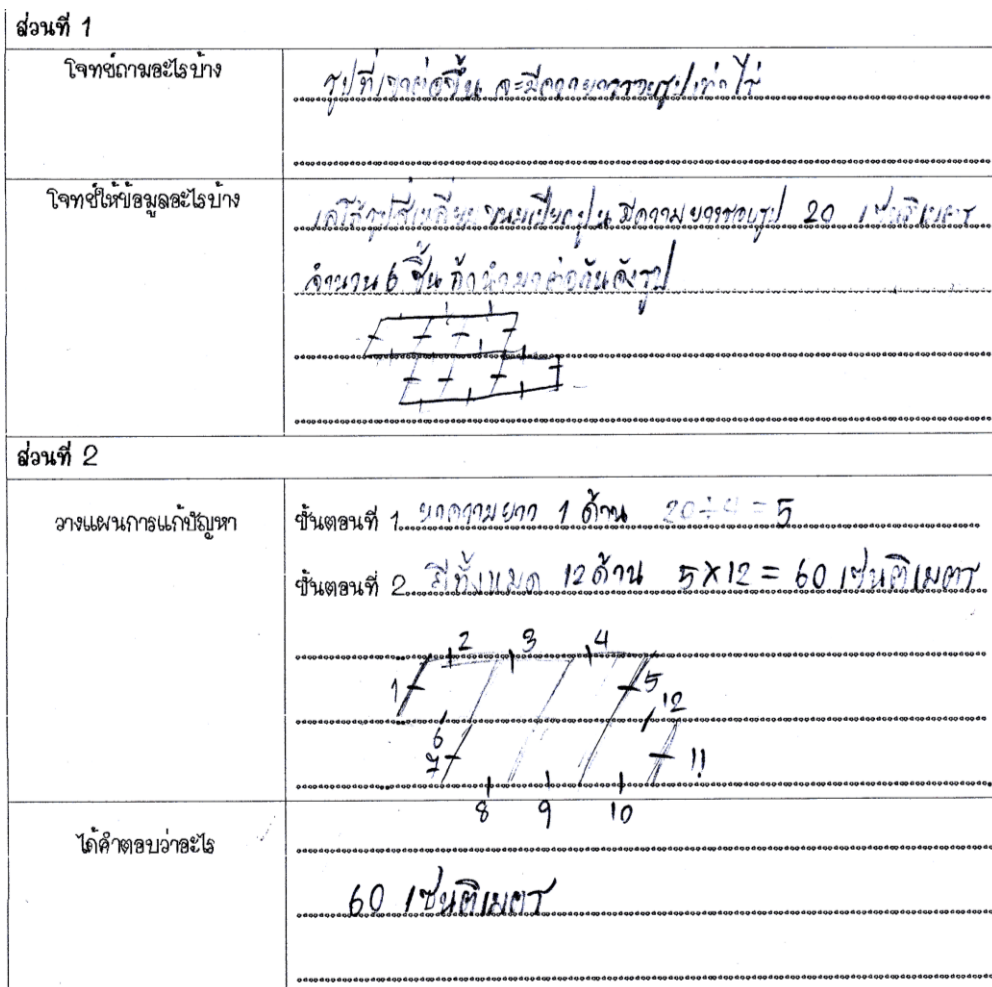 ส่วนที่ 1
โจทย์ถามอะไรบ้าง
รูปที่เขาต่อขึ้น จะมีความยาวรอบรูปเท่าไร่
โจทย์ให้ข้อมูลอะไรบ้าง
รูปสี่เหลี่ยมขนมเปียกปูน มีความยาวรอบรูป 20 เซนติเมตร
จำนวน 6 ชิ้น ถ้านำมาต่อกันดังรูป
ส่วนที่ 2
วางแผนการแก้ปัญหา
ขั้นตอนที่ 1 หาความยาว 1 ด้าน 20÷4 = 5
ขั้นตอนที่ 2 มีทั้งหมด 12 ด้าน 5×12 = 60 เซนติเมตร
2 3 4
1 5
12
6
7 11
8 9 10
ได้คำตอบว่าอะไร
60 เซนติเมตร